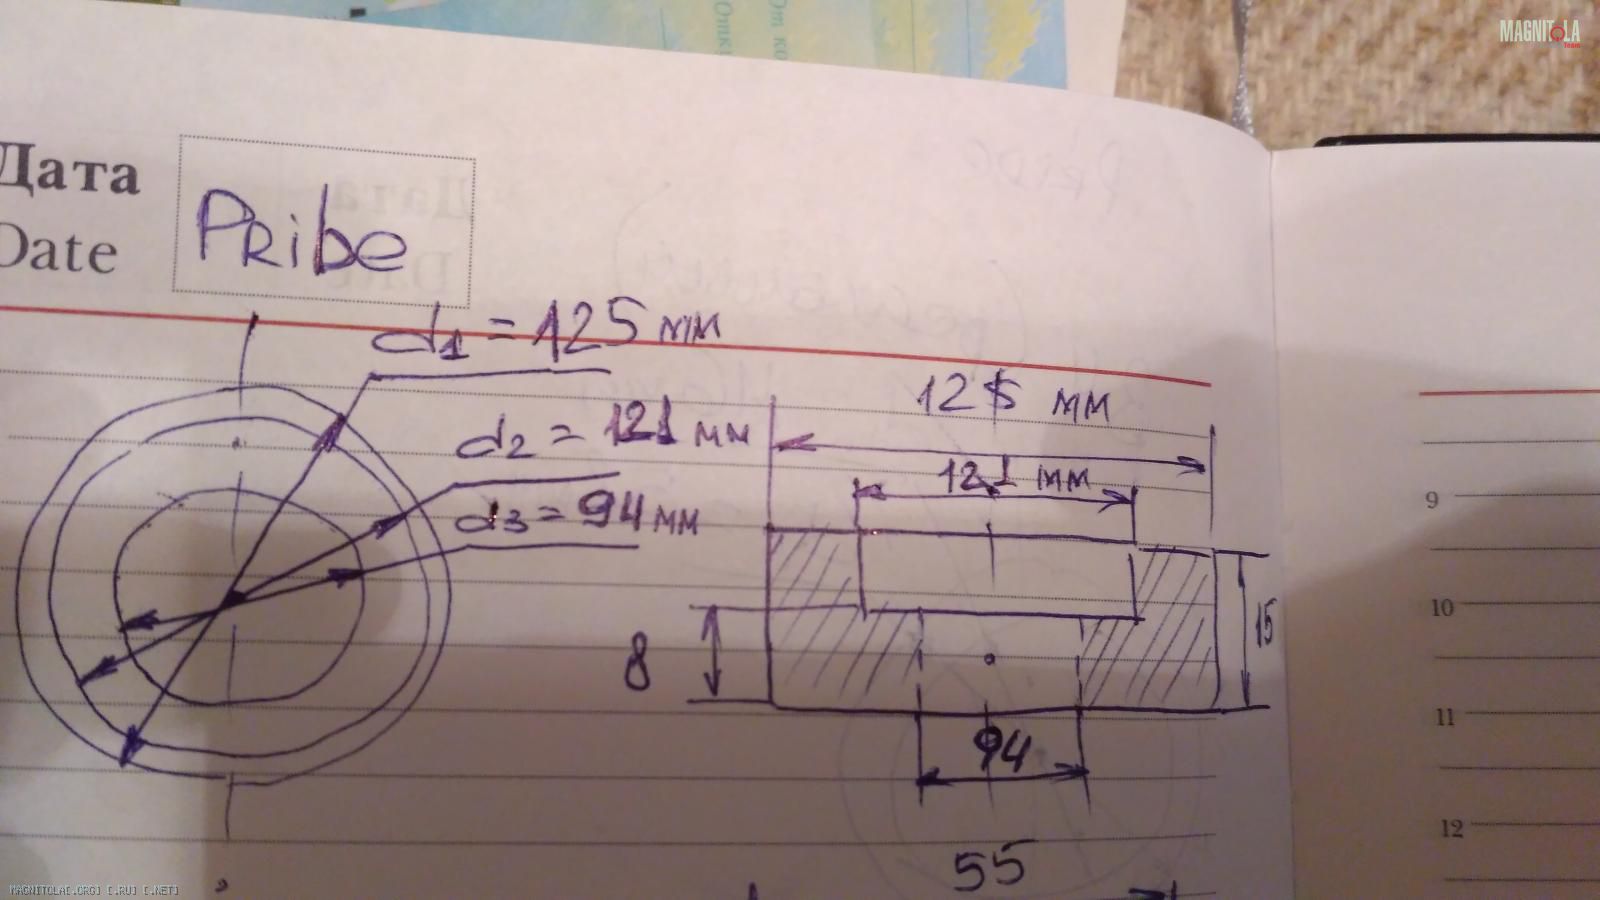 MAGNITOLA
Team
От ко
Отк
Дата
Date
Pribe
d1 = 125 мм
d2 = 121 мм
d3 = 94 мм
125 мм
121 мм
8
15
94
55
9
10
11
12
MAGNITOLA[.ORG] [.RU] [.NET]